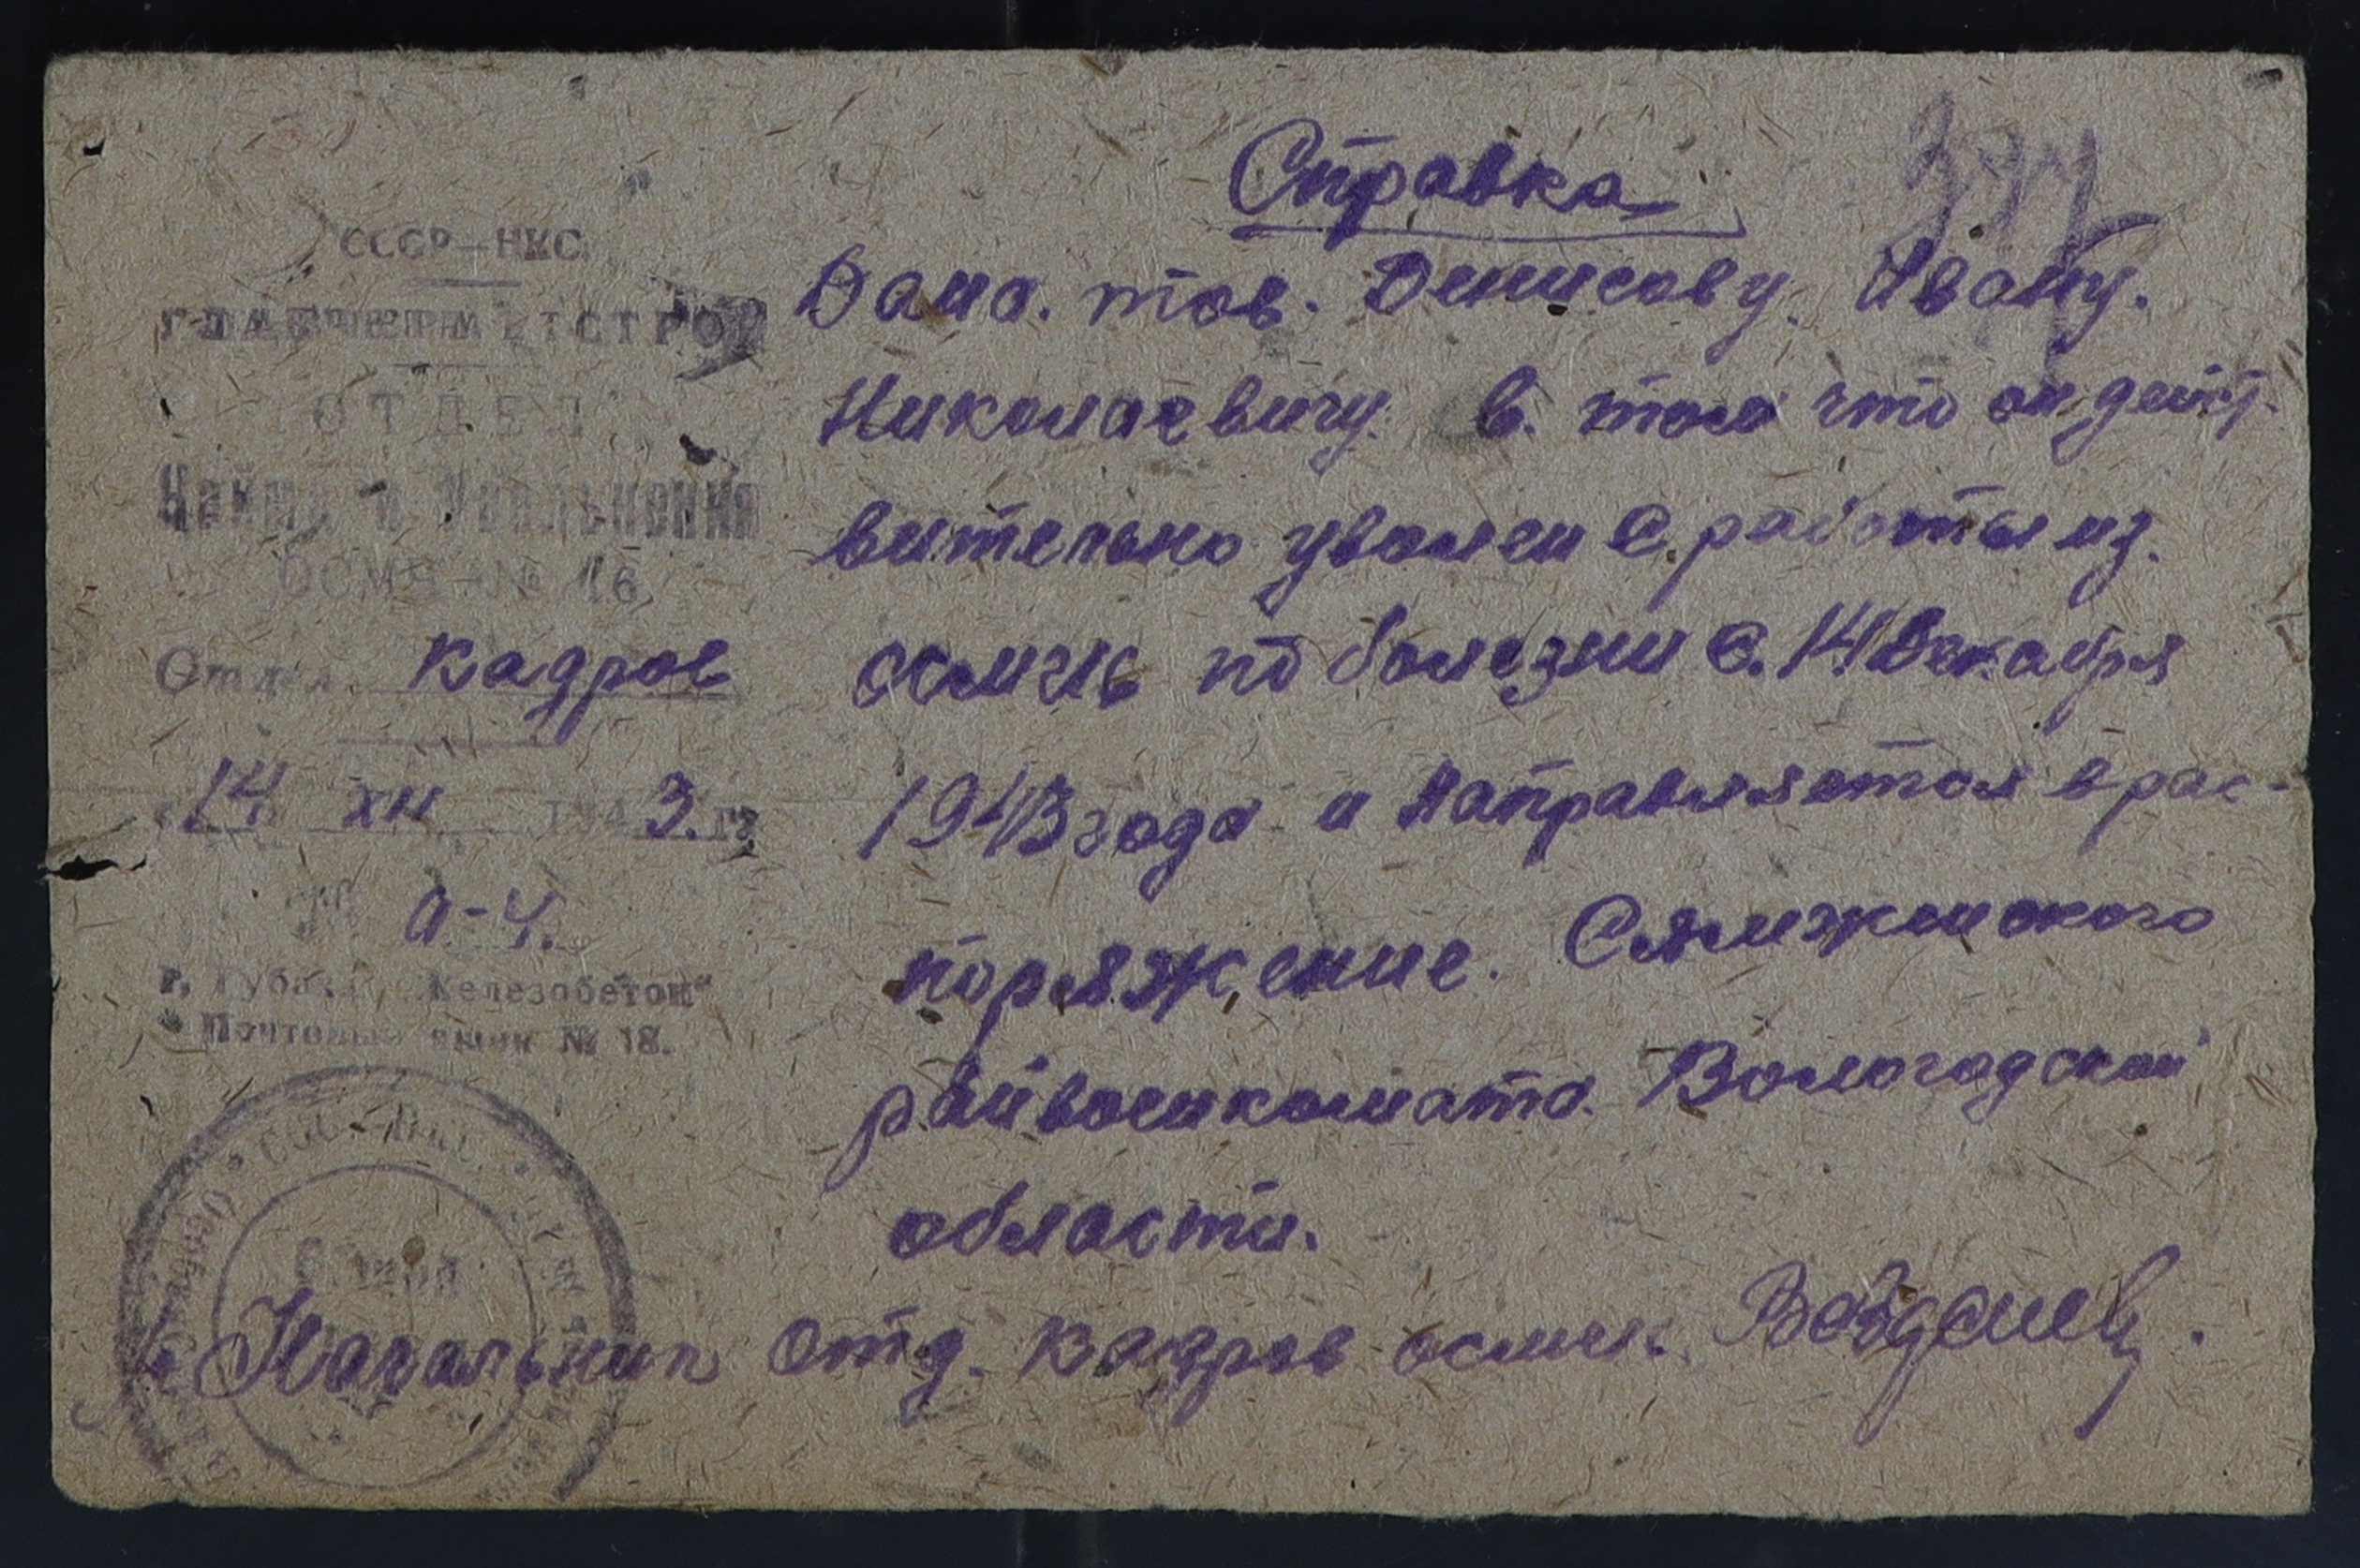 СССР–НКС
ОТДЕЛ
Найма и Увольнения
ОСМЧ–№ 16
Отдел кадров
"14" XII 1943 г.
№ а-4.
г. Губаха, „Железобетон“
Почтовый ящик № 18.
377
Справка
Дана. тов. Денисову. Ивану.
Николаевичу. в. том что он дейст-
вительно уволен с. работы из.
осмч16 по болезни с. 14 Декабря
1943 года и направляется в рас-
поряжение. Сямженского
райвоенкомата. Вологодской
области.
Начальник отд. кадров осмч.